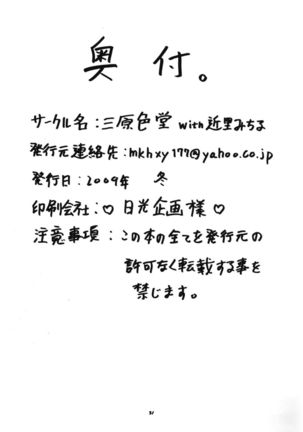 奥付。
サークル名：三原色堂 with 近里みちる
発行元連絡先：mkhxy177@yahoo.co.jp
発行日：2009年 冬
印刷会社：♡ 日光企画様 ♡
注意事項：この本の全てを発行元の
許可なく転載する事を
禁じます。